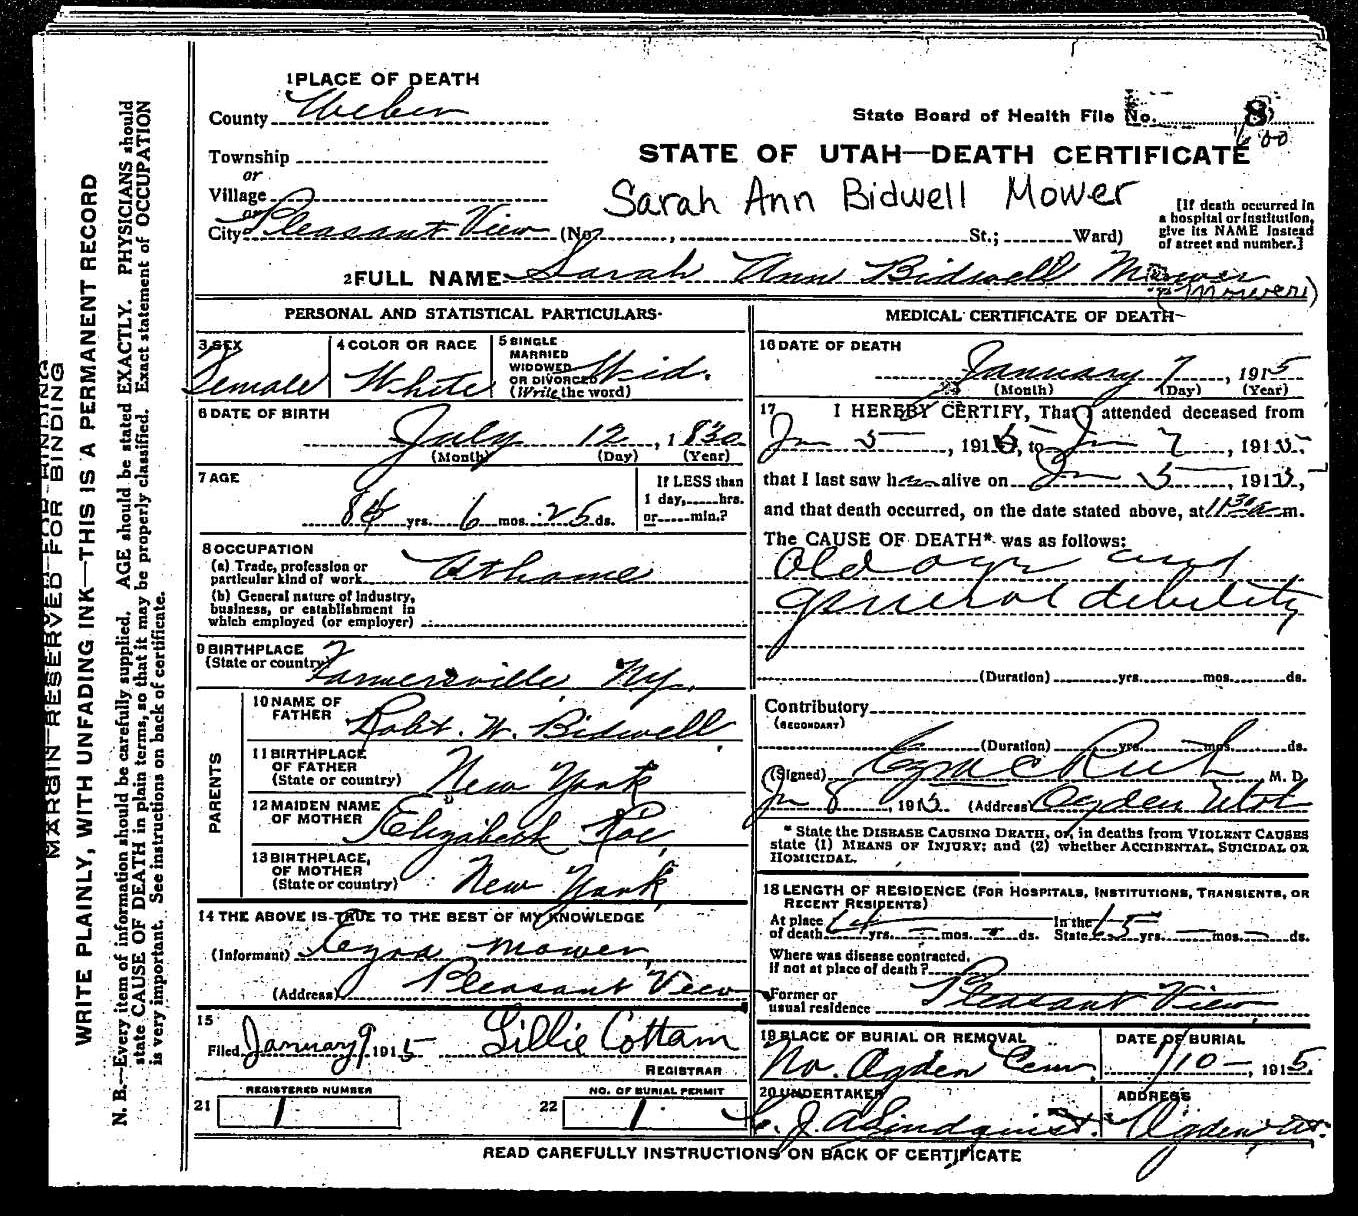 1 PLACE OF DEATH
County Weber
State Board of Health File No. 8
600
Township
or
Village
or
City Pleasant View (No. , St.; Ward)
STATE OF UTAH—DEATH CERTIFICATE
Sarah Ann Bidwell Mower
[If death occurred in
a hospital or institution,
give its NAME instead
of street and number.]
2 FULL NAME Sarah Ann Bidwell Mower
(Mowers)
PERSONAL AND STATISTICAL PARTICULARS
3 SEX
Female
4 COLOR OR RACE
White
5 SINGLE
MARRIED
WIDOWED
OR DIVORCED
(Write the word)
Wid.
6 DATE OF BIRTH
July 12, 1830
(Month) (Day) (Year)
7 AGE
84 yrs. 6 mos. 25 ds.
If LESS than
1 day, hrs.
or min.?
8 OCCUPATION
(a) Trade, profession or
particular kind of work At home
(b) General nature of industry,
business, or establishment in
which employed (or employer)
9 BIRTHPLACE
(State or country)
Farmersville Ny.
PARENTS
10 NAME OF
FATHER
Robt. W. Bidwell
11 BIRTHPLACE
OF FATHER
(State or country)
New York
12 MAIDEN NAME
OF MOTHER
Elizabeth Roe,
13 BIRTHPLACE,
OF MOTHER
(State or country)
New York
14 THE ABOVE IS TRUE TO THE BEST OF MY KNOWLEDGE
(Informant) Ezra Mower,
(Address) Pleasant View
15
Filed January 9 1915 Lillie Cottam
REGISTRAR
REGISTERED NUMBER
21 1
NO. OF BURIAL PERMIT
22 1
MEDICAL CERTIFICATE OF DEATH
16 DATE OF DEATH
January 7, 1915
(Month) (Day) (Year)
17 I HEREBY CERTIFY, That I attended deceased from
Jan 5, 1915, to Jan 7, 1915.
that I last saw her alive on Jan 5, 1915,
and that death occurred, on the date stated above, at 11 30 a m.
The CAUSE OF DEATH* was as follows:
Old age and
general debility
(Duration) yrs. mos. ds.
Contributory
(SECONDARY)
(Duration) yrs. mos. ds.
(Signed) M. D.
Jan 8, 1915 (Address) Ogden Utah
* State the DISEASE CAUSING DEATH, or, in deaths from VIOLENT CAUSES
state (1) MEANS OF INJURY; and (2) whether ACCIDENTAL, SUICIDAL OR
HOMICIDAL.
18 LENGTH OF RESIDENCE (FOR HOSPITALS, INSTITUTIONS, TRANSIENTS, OR
RECENT RESIDENTS)
At place
of death yrs. – mos. – ds. In the
State 65 yrs. – mos. – ds.
Where was disease contracted,
if not at place of death?
Former or
usual residence Pleasant View,
19 PLACE OF BURIAL OR REMOVAL
No. Ogden Cem.
DATE OF BURIAL
1/10 –, 1915.
20 UNDERTAKER
C. J. A. Lindquist.
ADDRESS
Ogden, Ut.
READ CAREFULLY INSTRUCTIONS ON BACK OF CERTIFICATE
MARGIN RESERVED FOR BINDING
WRITE PLAINLY, WITH UNFADING INK—THIS IS A PERMANENT RECORD
N. B.—Every item of information should be carefully supplied. AGE should be stated EXACTLY. PHYSICIANS should
state CAUSE OF DEATH in plain terms, so that it may be properly classified. Exact statement of OCCUPATION
is very important. See instructions on back of certificate.